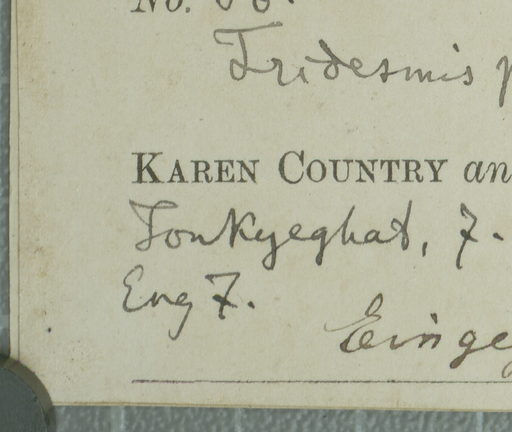 No.
Tridesmis p
KAREN COUNTRY an
Tonkyeghat, 7.
Eng 7.
Einge